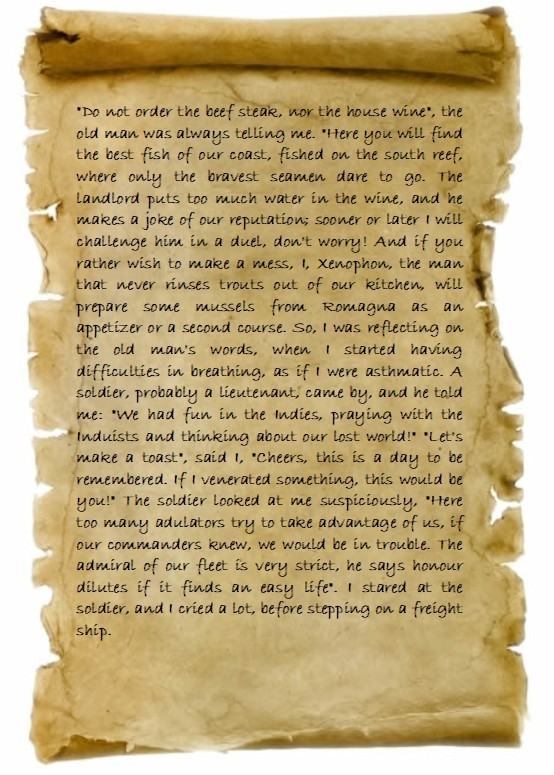 "Do not order the beef steak, nor the house wine", the
old man was always telling me. "Here you will find
the best fish of our coast, fished on the south reef,
where only the bravest seamen dare to go. The
landlord puts too much water in the wine, and he
makes a joke of our reputation; sooner or later I will
challenge him in a duel, don't worry! And if you
rather wish to make a mess, I, Xenophon, the man
that never rinses trouts out of our kitchen, will
prepare some mussels from Romagna as an
appetizer or a second course. So, I was reflecting on
the old man's words, when I started having
difficulties in breathing, as if I were asthmatic. A
soldier, probably a lieutenant, came by, and he told
me: "We had fun in the Indies, praying with the
Induists and thinking about our lost world!" "Let's
make a toast", said I, "Cheers, this is a day to be
remembered. If I venerated something, this would be
you!" The soldier looked at me suspiciously, "Here
too many adulators try to take advantage of us, if
our commanders knew, we would be in trouble. The
admiral of our fleet is very strict, he says honour
dilutes if it finds an easy life". I stared at the
soldier, and I cried a lot, before stepping on a freight
ship.